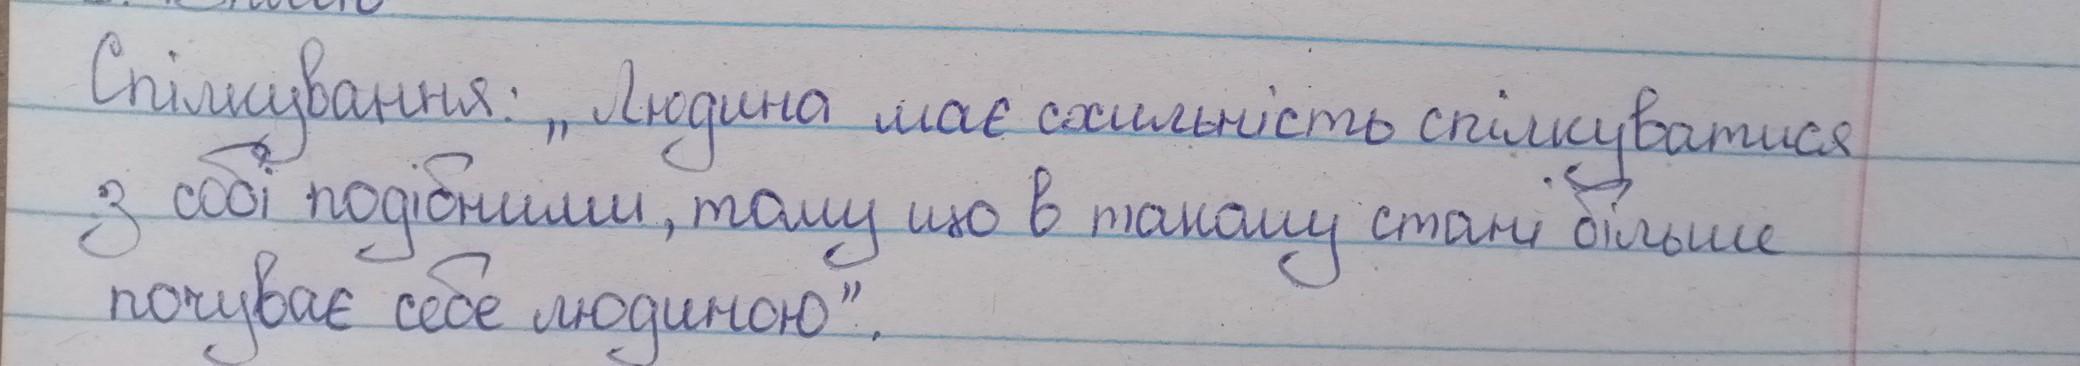 Спілкування: „Людина має схильність спілкуватися
з собі подібними, тому що в такому стані більше
почуває себе людиною”.